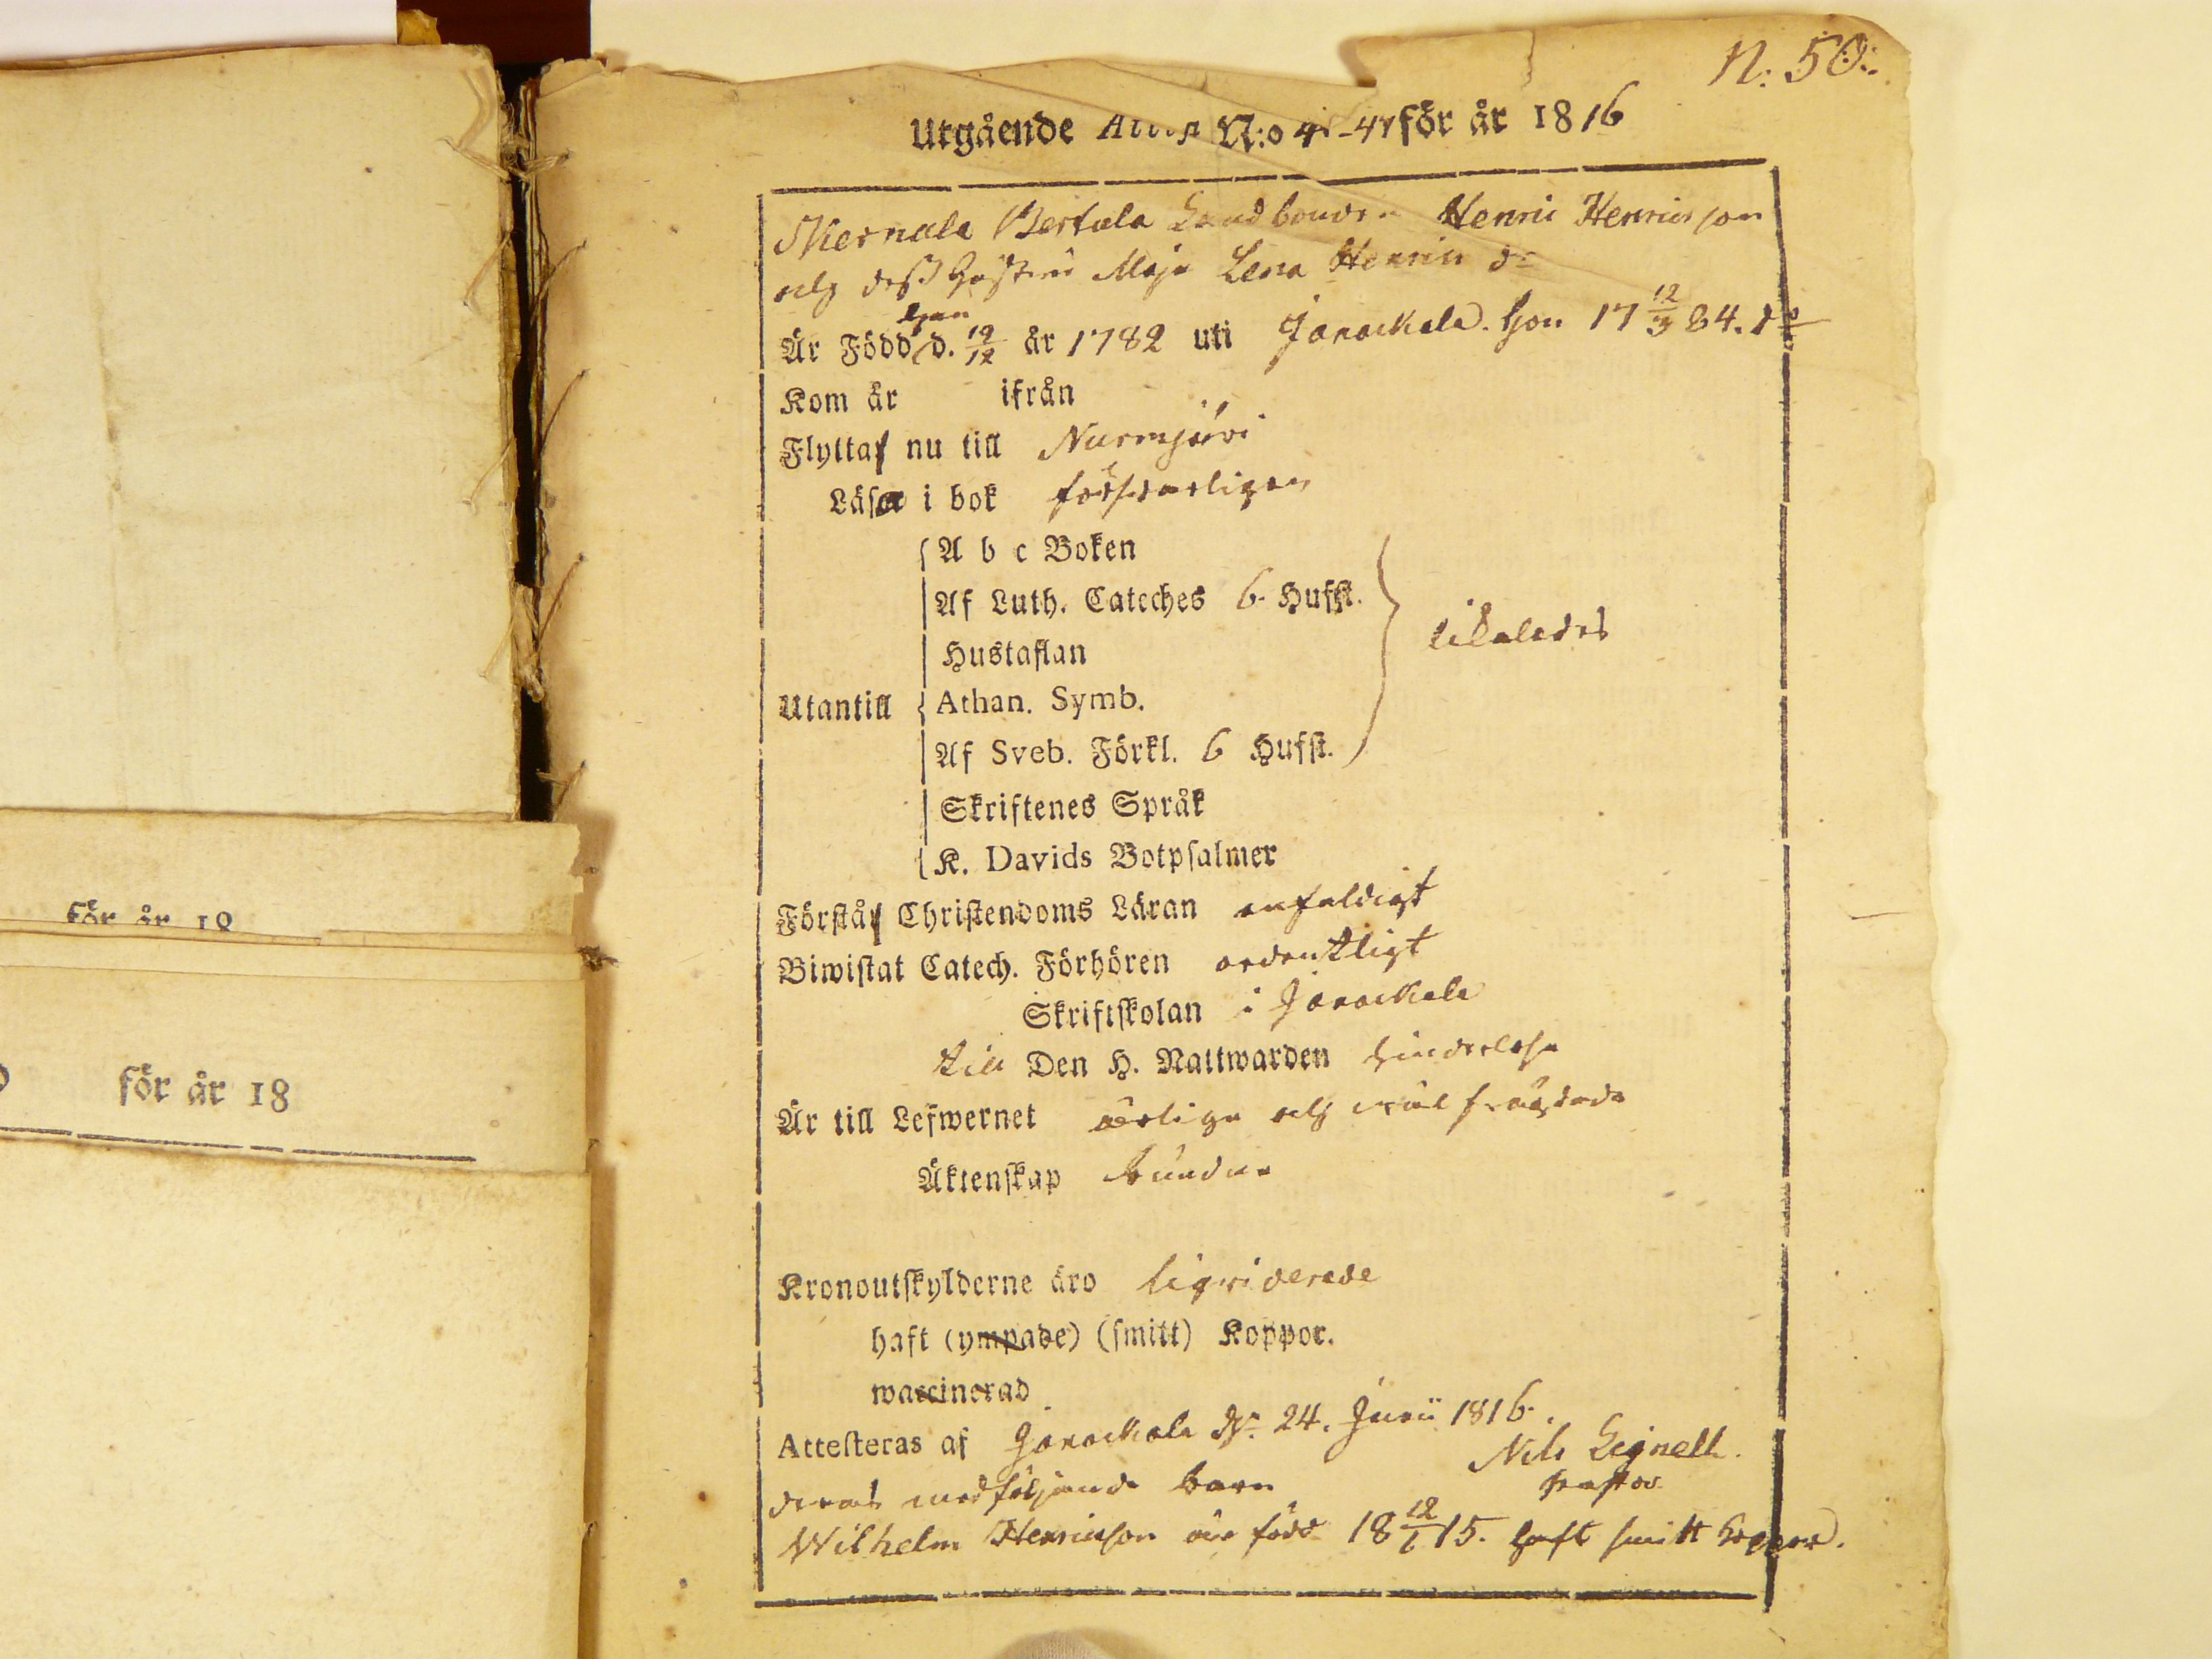 N: 50.
Utgående Attest N:o 4 -47 för år 1816
Miernala Bertula Landbonden Henric Henricsson
och dess Hustru Maja Lena Henrics dr
han
Är Född d. 19/12 år 1782 uti Janackala. hon 17 12/3 84.
Kom år ifrån
Flytta nu till Nurmijärvi
Läsa i bok försvarligen
A b c Boken
Af Luth. Cateches 6. Hufst.
Hustaflan
likaledes
Utantill Athan. Symb.
Af Sveb. Förkl. 6 Hufst.
Skriftenes Språk
K. Davids Botpsalmer
Förstå Christendoms Läran enfaldigt
Biwistat Catech. Förhören ordentligt
Skriftskolan i Janackala
till Den H. Nattwarden hinderlösa
Är till Lefwernet ärliga och väl frägdade
Äktenskap bundna
Kronoutskylderne äro liqviderade
haft (ympade) (smitt) Koppor.
waccinerad
Attesteras af Janackala d. 24. Junii 1816.
Nils Lignell.
Pastor
deras medföljande barn
Wilhelm Henricsson är född 18 12/6 15. haft smitt koppor.
för år 18
för år 18